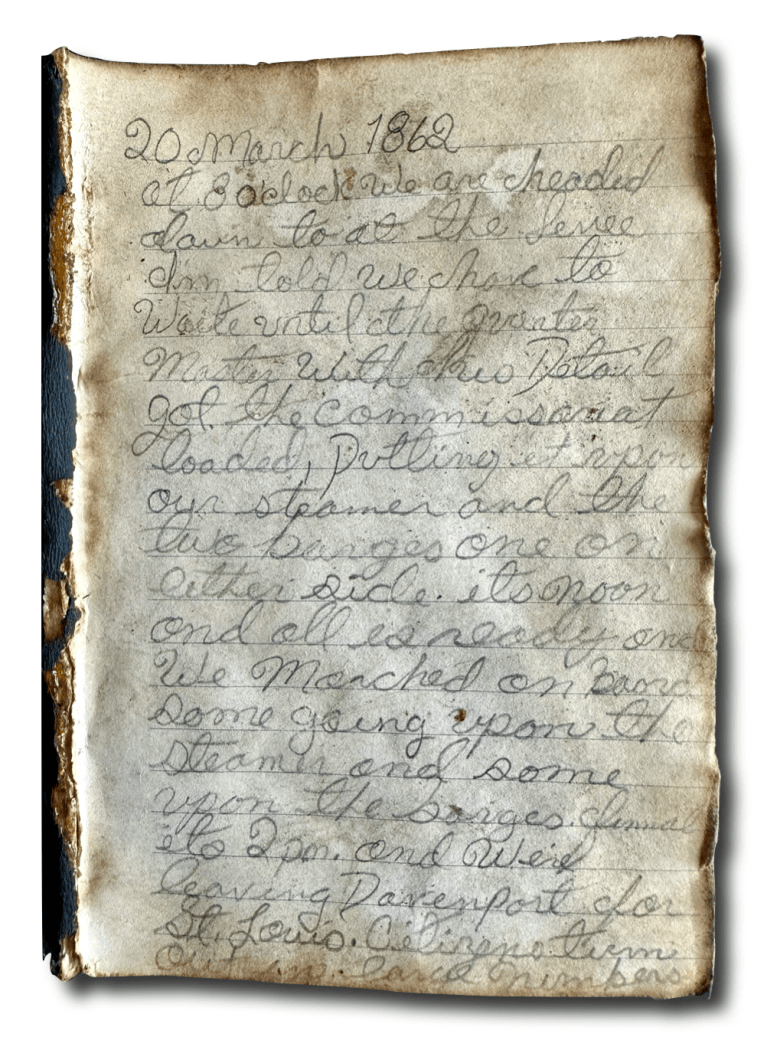 20 March 1862
at 8 oclock We are headed
down to at the levee
Im told we have to
Waite until the quarter
Master With his Detail
got the commissariat
loaded, Putting it upon
our steamer and the
two barges one on
either side. its noon
and all is ready and
We Marched on board
some going upon the
steamer and some
upon the barges.
its 2 pm. and Were
leaving Davenport for
St. Louis. Citizens turn
out in large numbers